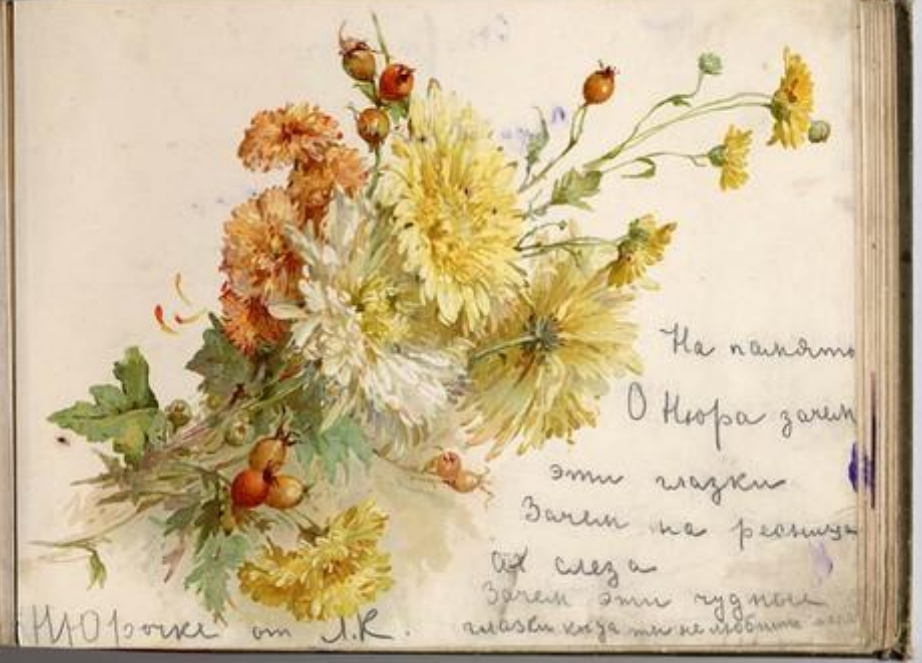 На память
О Нюра зачем
эти глазки
Зачем на ресницах
слеза
Зачем эти чудные
глазки когда ты не любишь
Нюрочке от Л.К.